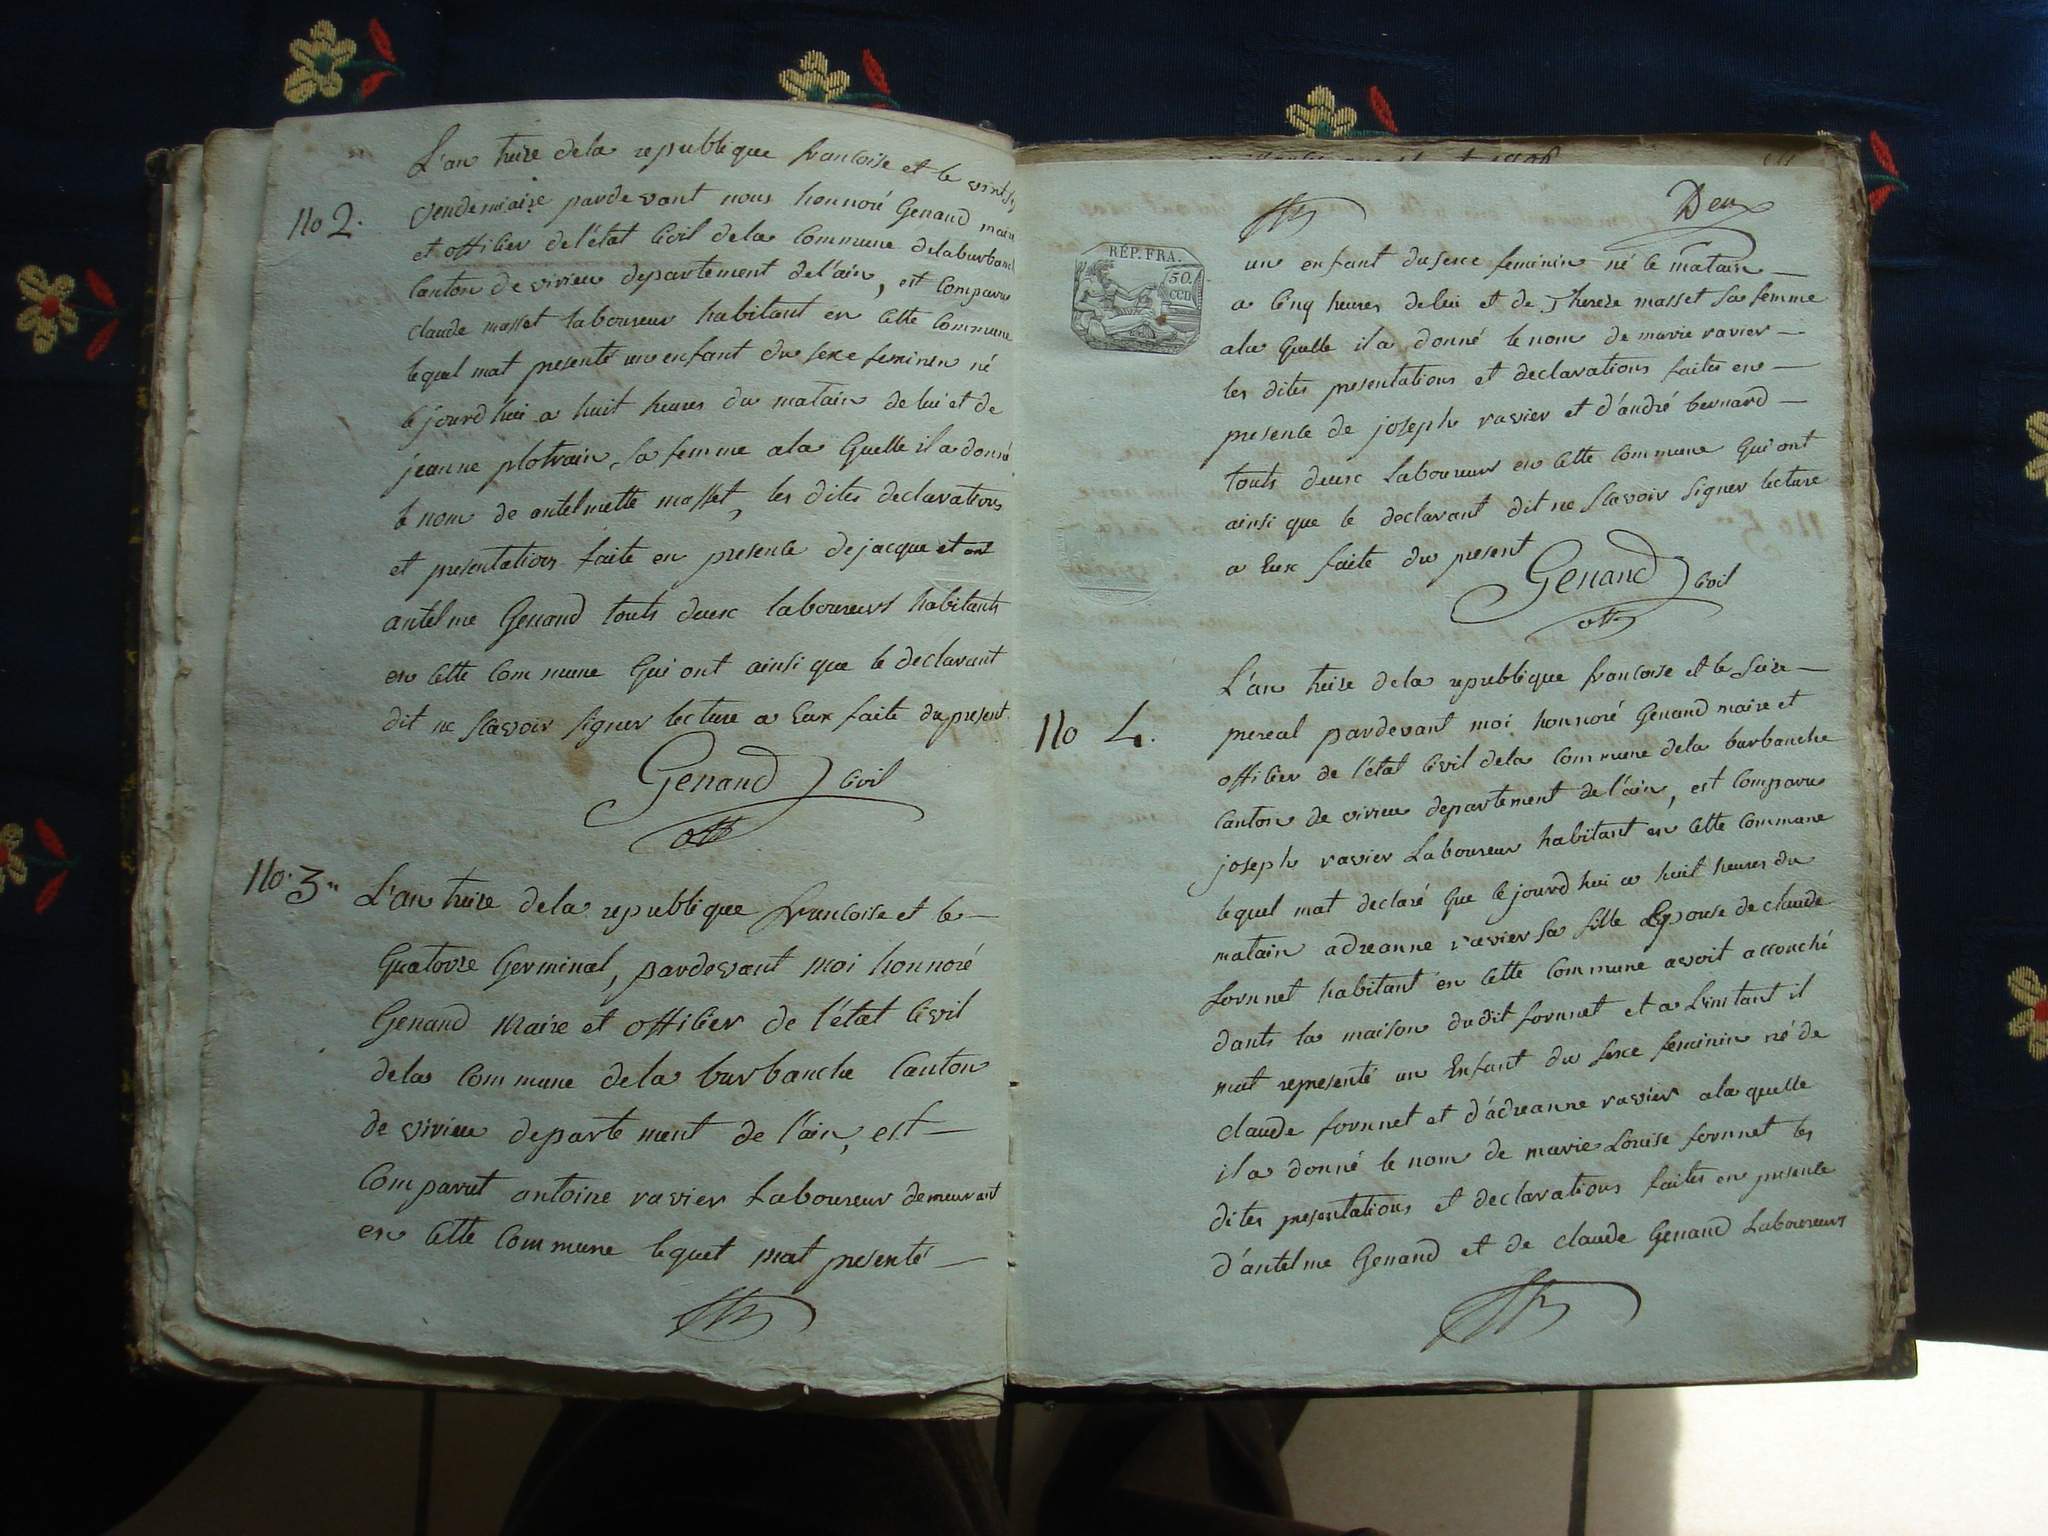 L'an treize dela republique francoise et le vint
No 2.
vendemiaire pardevant nous honnoré Genand maire
et officier de l'état Civil dela Commune delaburbanc
Canton de virieu departement de l'ain, est Comparu
claude masset laboureur habitant en Cette Commune
lequel mat presenté un enfant du sexe feminin né
cejourdhui a huit heures du matain de lui et de
jeanne plotrain, sa femme ala Quelle il a donné
le nom de antelmette masset, les dites declarations
et presentations faite en presence de jacque et
antelme Genand touts deux laboureurs habitants
en Cette Commune Qui ont ainsi que le declarant
dit ne scavoir signer lecture a Eux faite du present.
Genand
Civil
off
No. 3
L'an treize dela republique francoise et le
Quatorze Germinal, pardevant moi honnoré
Genand Maire et officier de l'état Civil
dela Commune dela burbanche Canton
de virieu departement de l'ain, est
Comparut antoine ravier Laboureur demeurant
en Cette Commune lequel mat presenté
Deux
RÉP. FRA.
50.
CEN.
un enfant du sexe feminin né le matain
a Cinq heures de lui et de Therese masset sa femme
ala Quelle il a donné le nom de marie ravier
les dites presentations et declarations faites en
presence de joseph ravier et d'andré bernard
touts deux Laboureurs en Cette Commune Qui ont
ainsi que le declarant dit ne scavoir signer lecture
a Eux faite du present
Genand
Civil
off
L'an treize dela republique francoise et le seize
No 4.
prereal pardevant moi honnoré Genand maire et
officier de l'état Civil dela Commune dela burbanche
Canton de virieu departement de l'ain, est Comparu
joseph ravier Laboureur habitant en Cette Commune
lequel mat declaré Que cejourdhui a huit heures du
matain adreanne ravier sa fille Epouse de claude
fornnet habitant en Cette Commune avoit accouché
dants la maison dudit fornnet et a L'instant il
mat representé un Enfant du sexe feminin né de
claude fornnet et d'adreanne ravier ala quelle
il a donné le nom de marie Louise fornnet les
dites presentations et declarations faites en presence
d'antelme Genand et de claude Genand Laboureurs